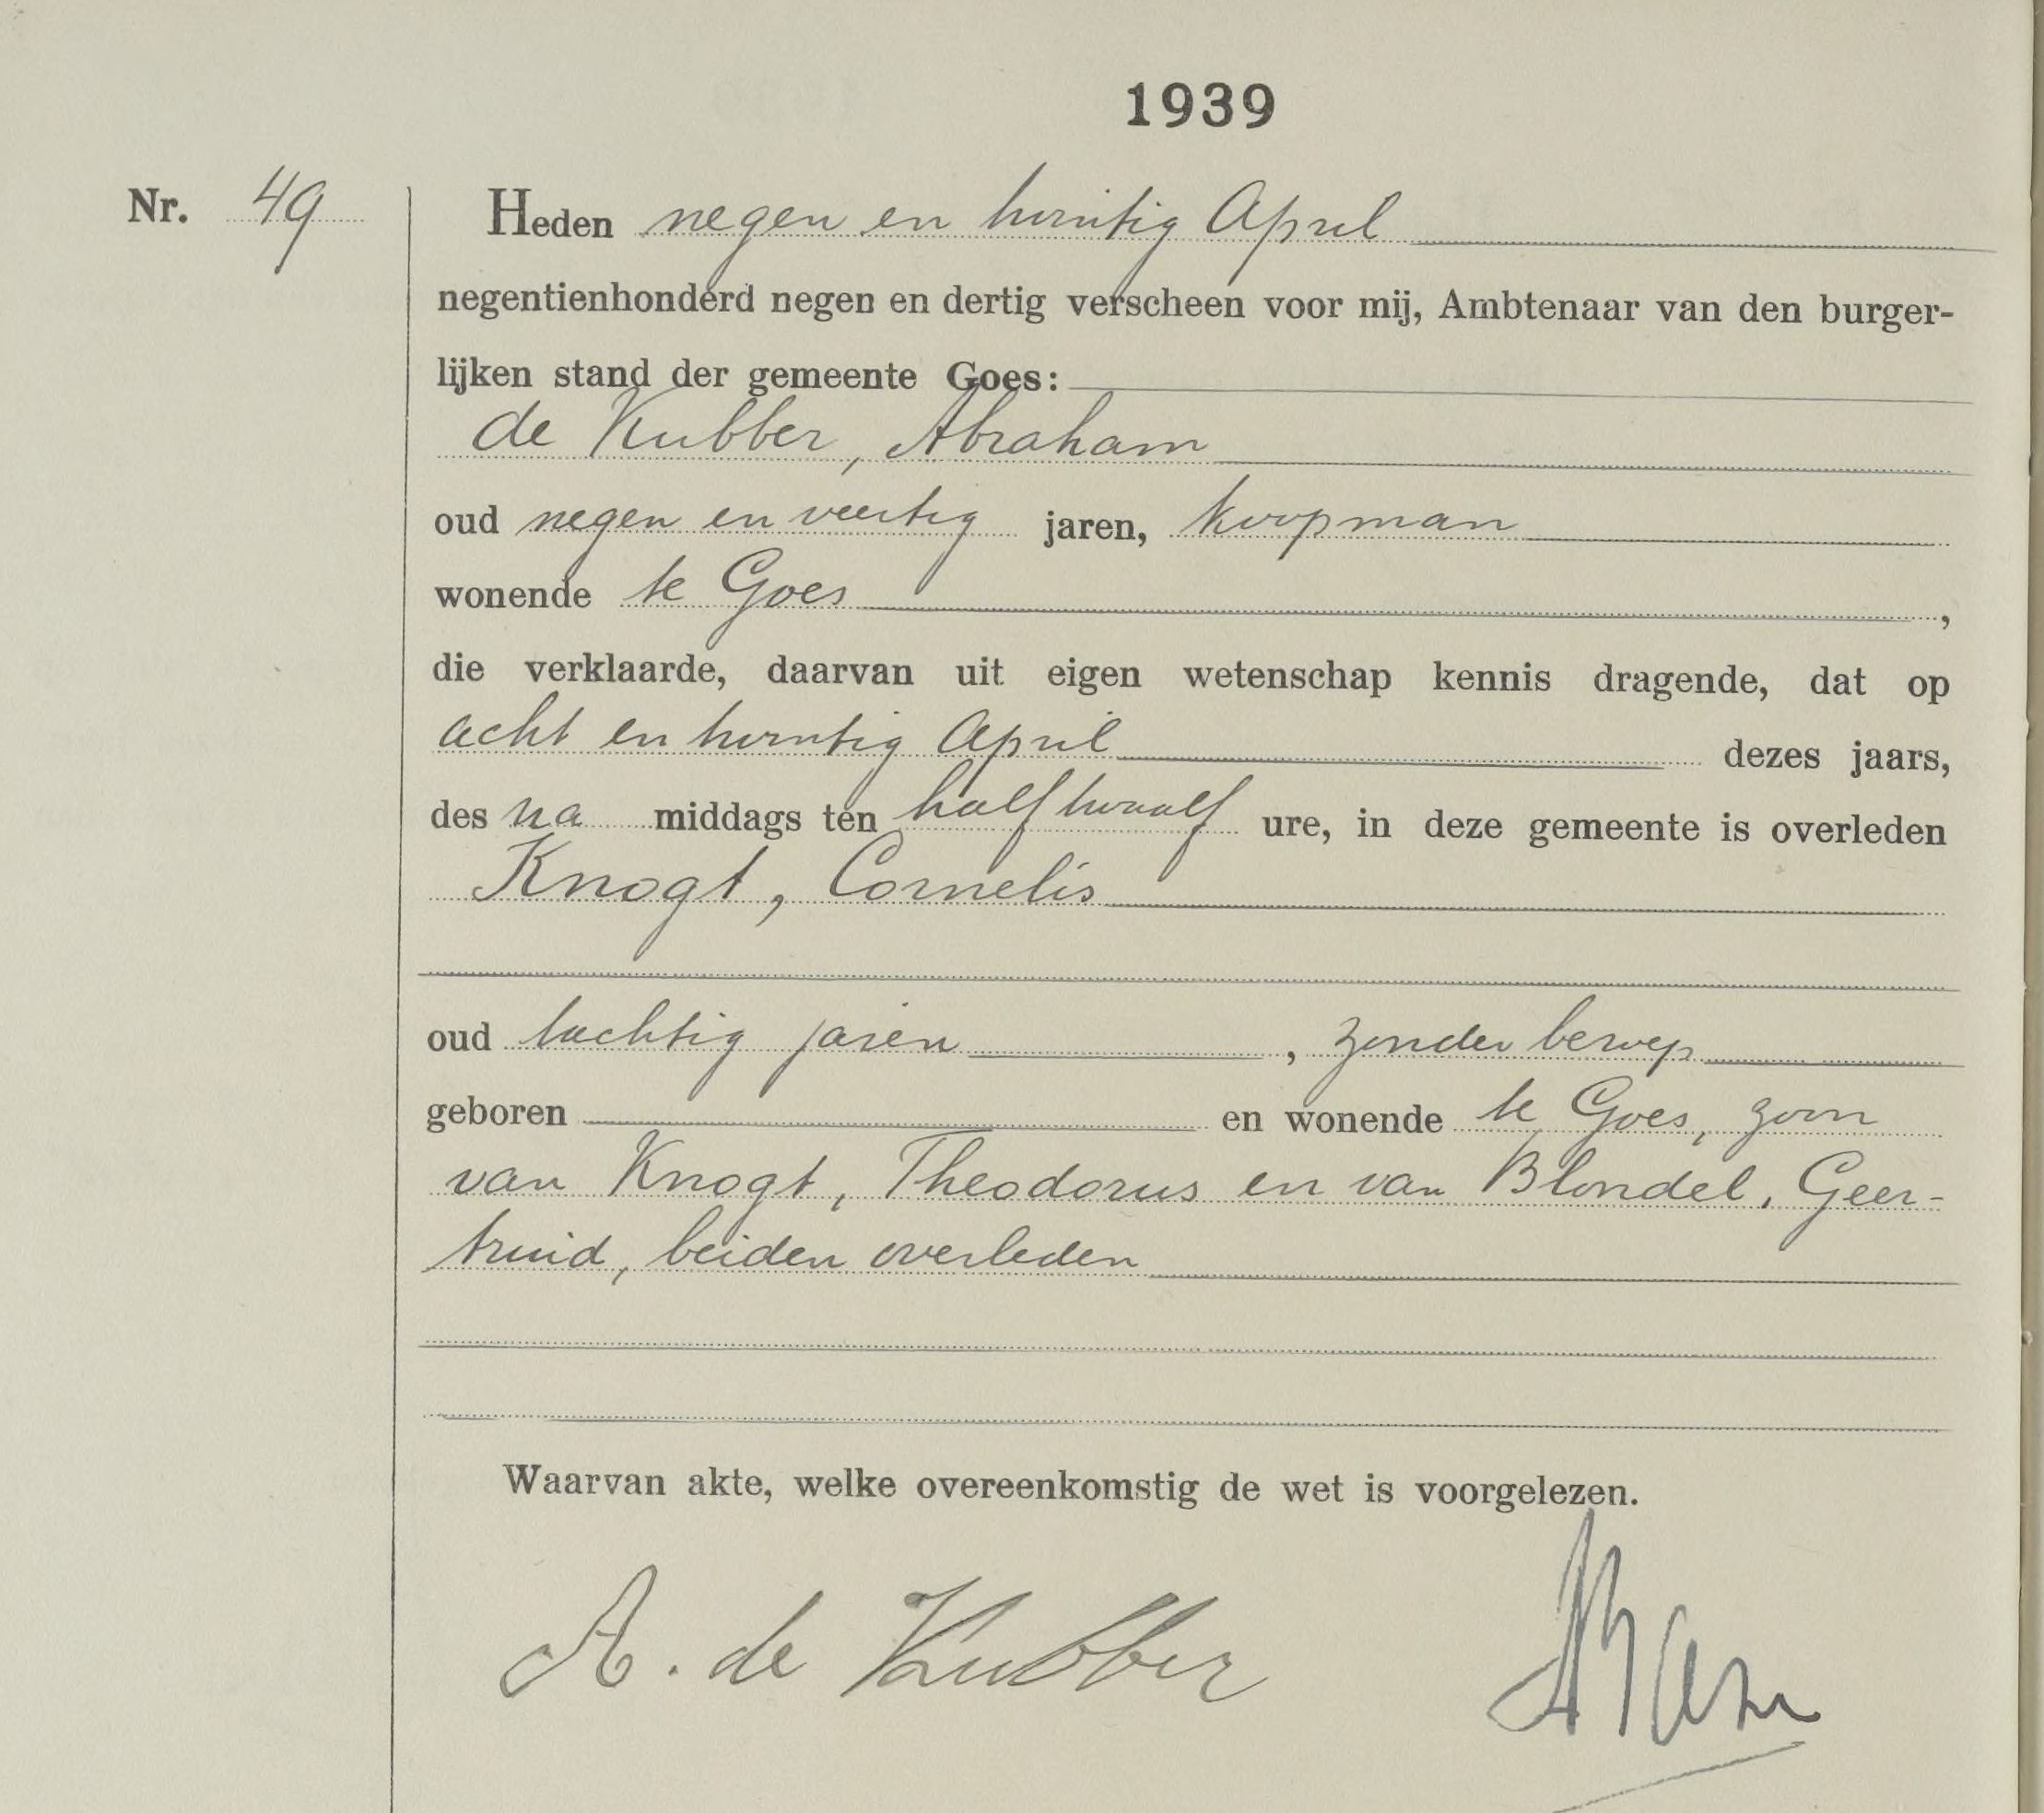 1939
Nr. 49
Heden negen en twintig April
negentienhonderd negen en dertig verscheen voor mij, Ambtenaar van den burger-
lijken stand der gemeente Goes:
de Kubber, Abraham
oud negen en veertig jaren, koopman
wonende te Goes,
die verklaarde, daarvan uit eigen wetenschap kennis dragende, dat op
acht en twintig April dezes jaars,
des na middags ten half twaalf ure, in deze gemeente is overleden
Knogt, Cornelis
oud tachtig jaren, zonder beroep
geboren en wonende te Goes, zoon
van Knogt, Theodorus en van Blondel, Geer-
truid, beiden overleden
Waarvan akte, welke overeenkomstig de wet is voorgelezen.
A. de Kubber